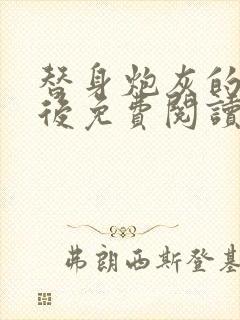 替身炮灰的
後免費閱讀
弗朗西斯登基